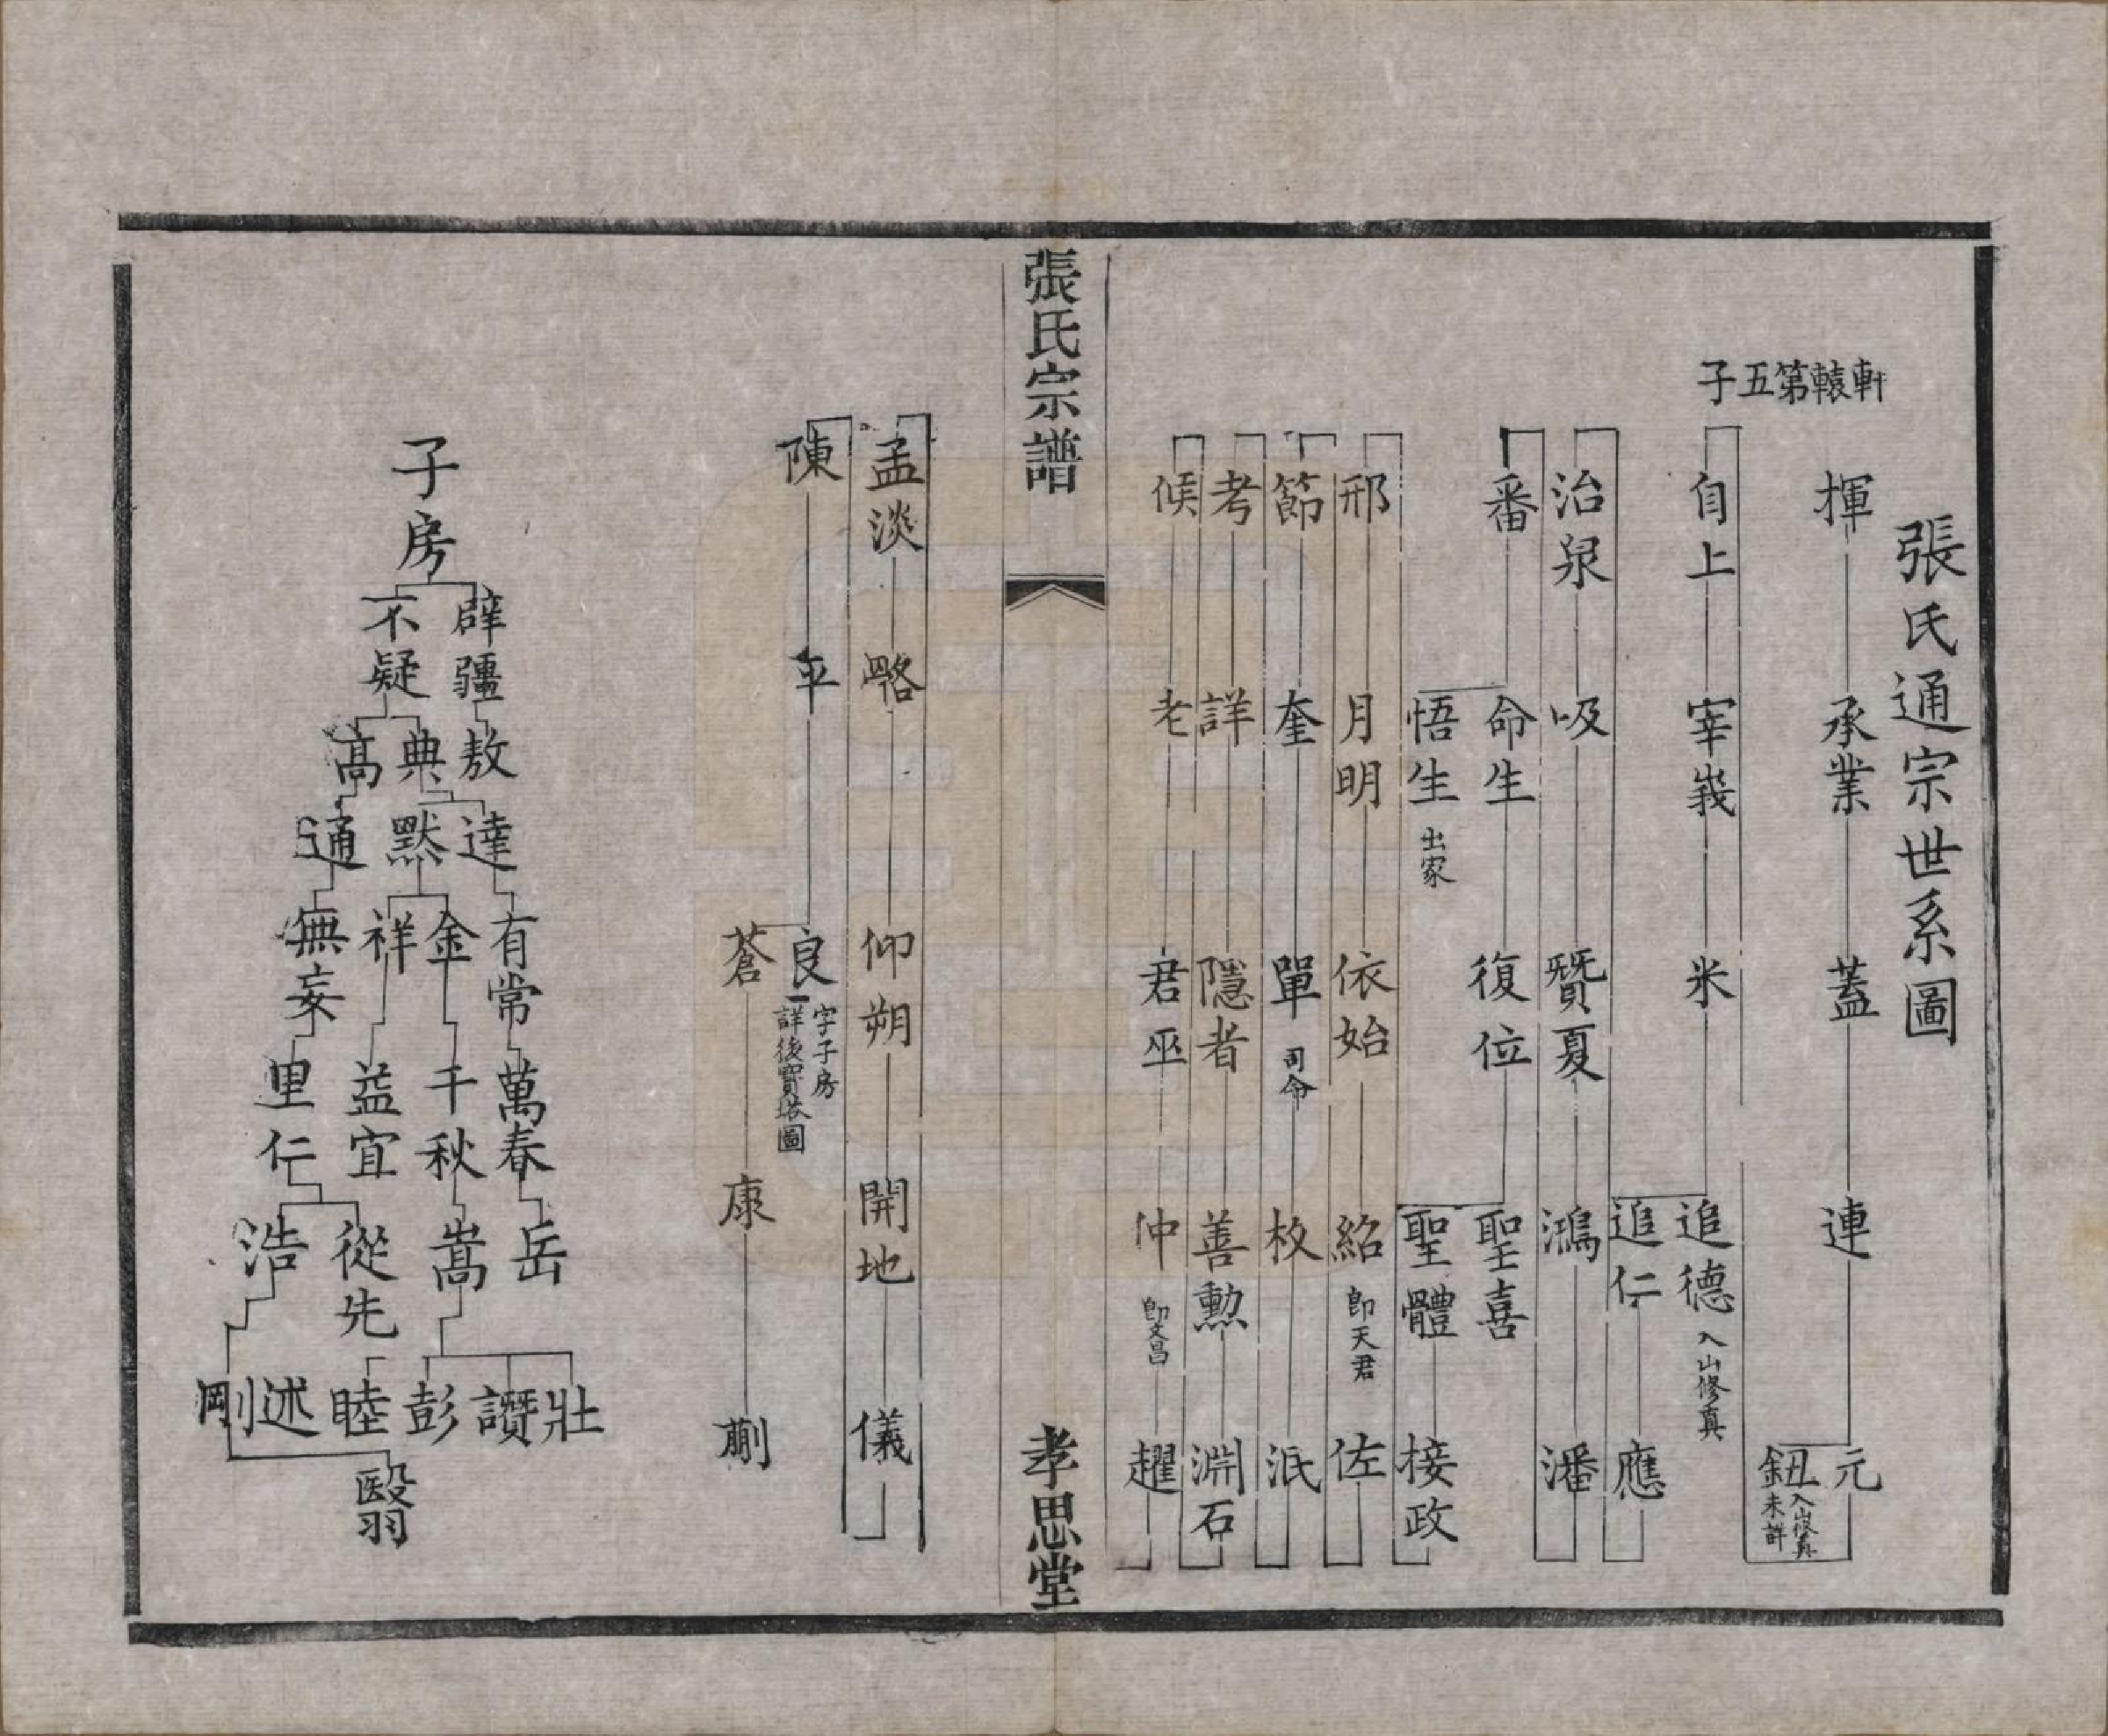 張氏通宗世系圖
軒轅第五子
揮 承業 蓋 連 元
鈕 入山修真 未詳
自上 宰義 米 追德 入山修真
追仁 應
治泉 吸 贒夏 鴻 潘
番 命生 復位 聖喜
悟生 出家
聖體 接政
邢 月明 依始 紹 即天君 佐
節 奎 單 司命 枚 泜
考 詳 隱者 善勲 淵石
候 老 君巫 仲 即文昌 趯
張氏宗譜
孝思堂
孟淡 略 仰朔 開地 儀
陳 平 良 字子房 詳後寶塔圖
蒼 康 蒯
子房
辟疆 不疑
敖 典 高
達 黙 通
有常 金 祥 無妄
萬春 千秋 益宜 里仁
岳 嵩 從先 浩
壯 讚 彭 睦 述 剛
翳